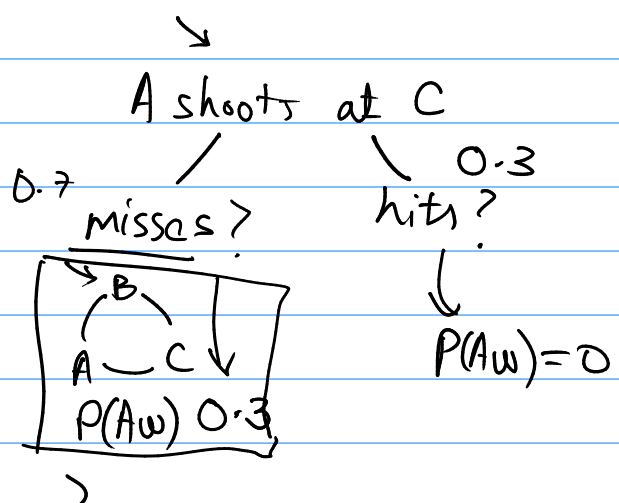 A shoots at C
0.7 0.3
misses? hits?
B
A C
P(Aw) = 0
P(Aw) 0.3